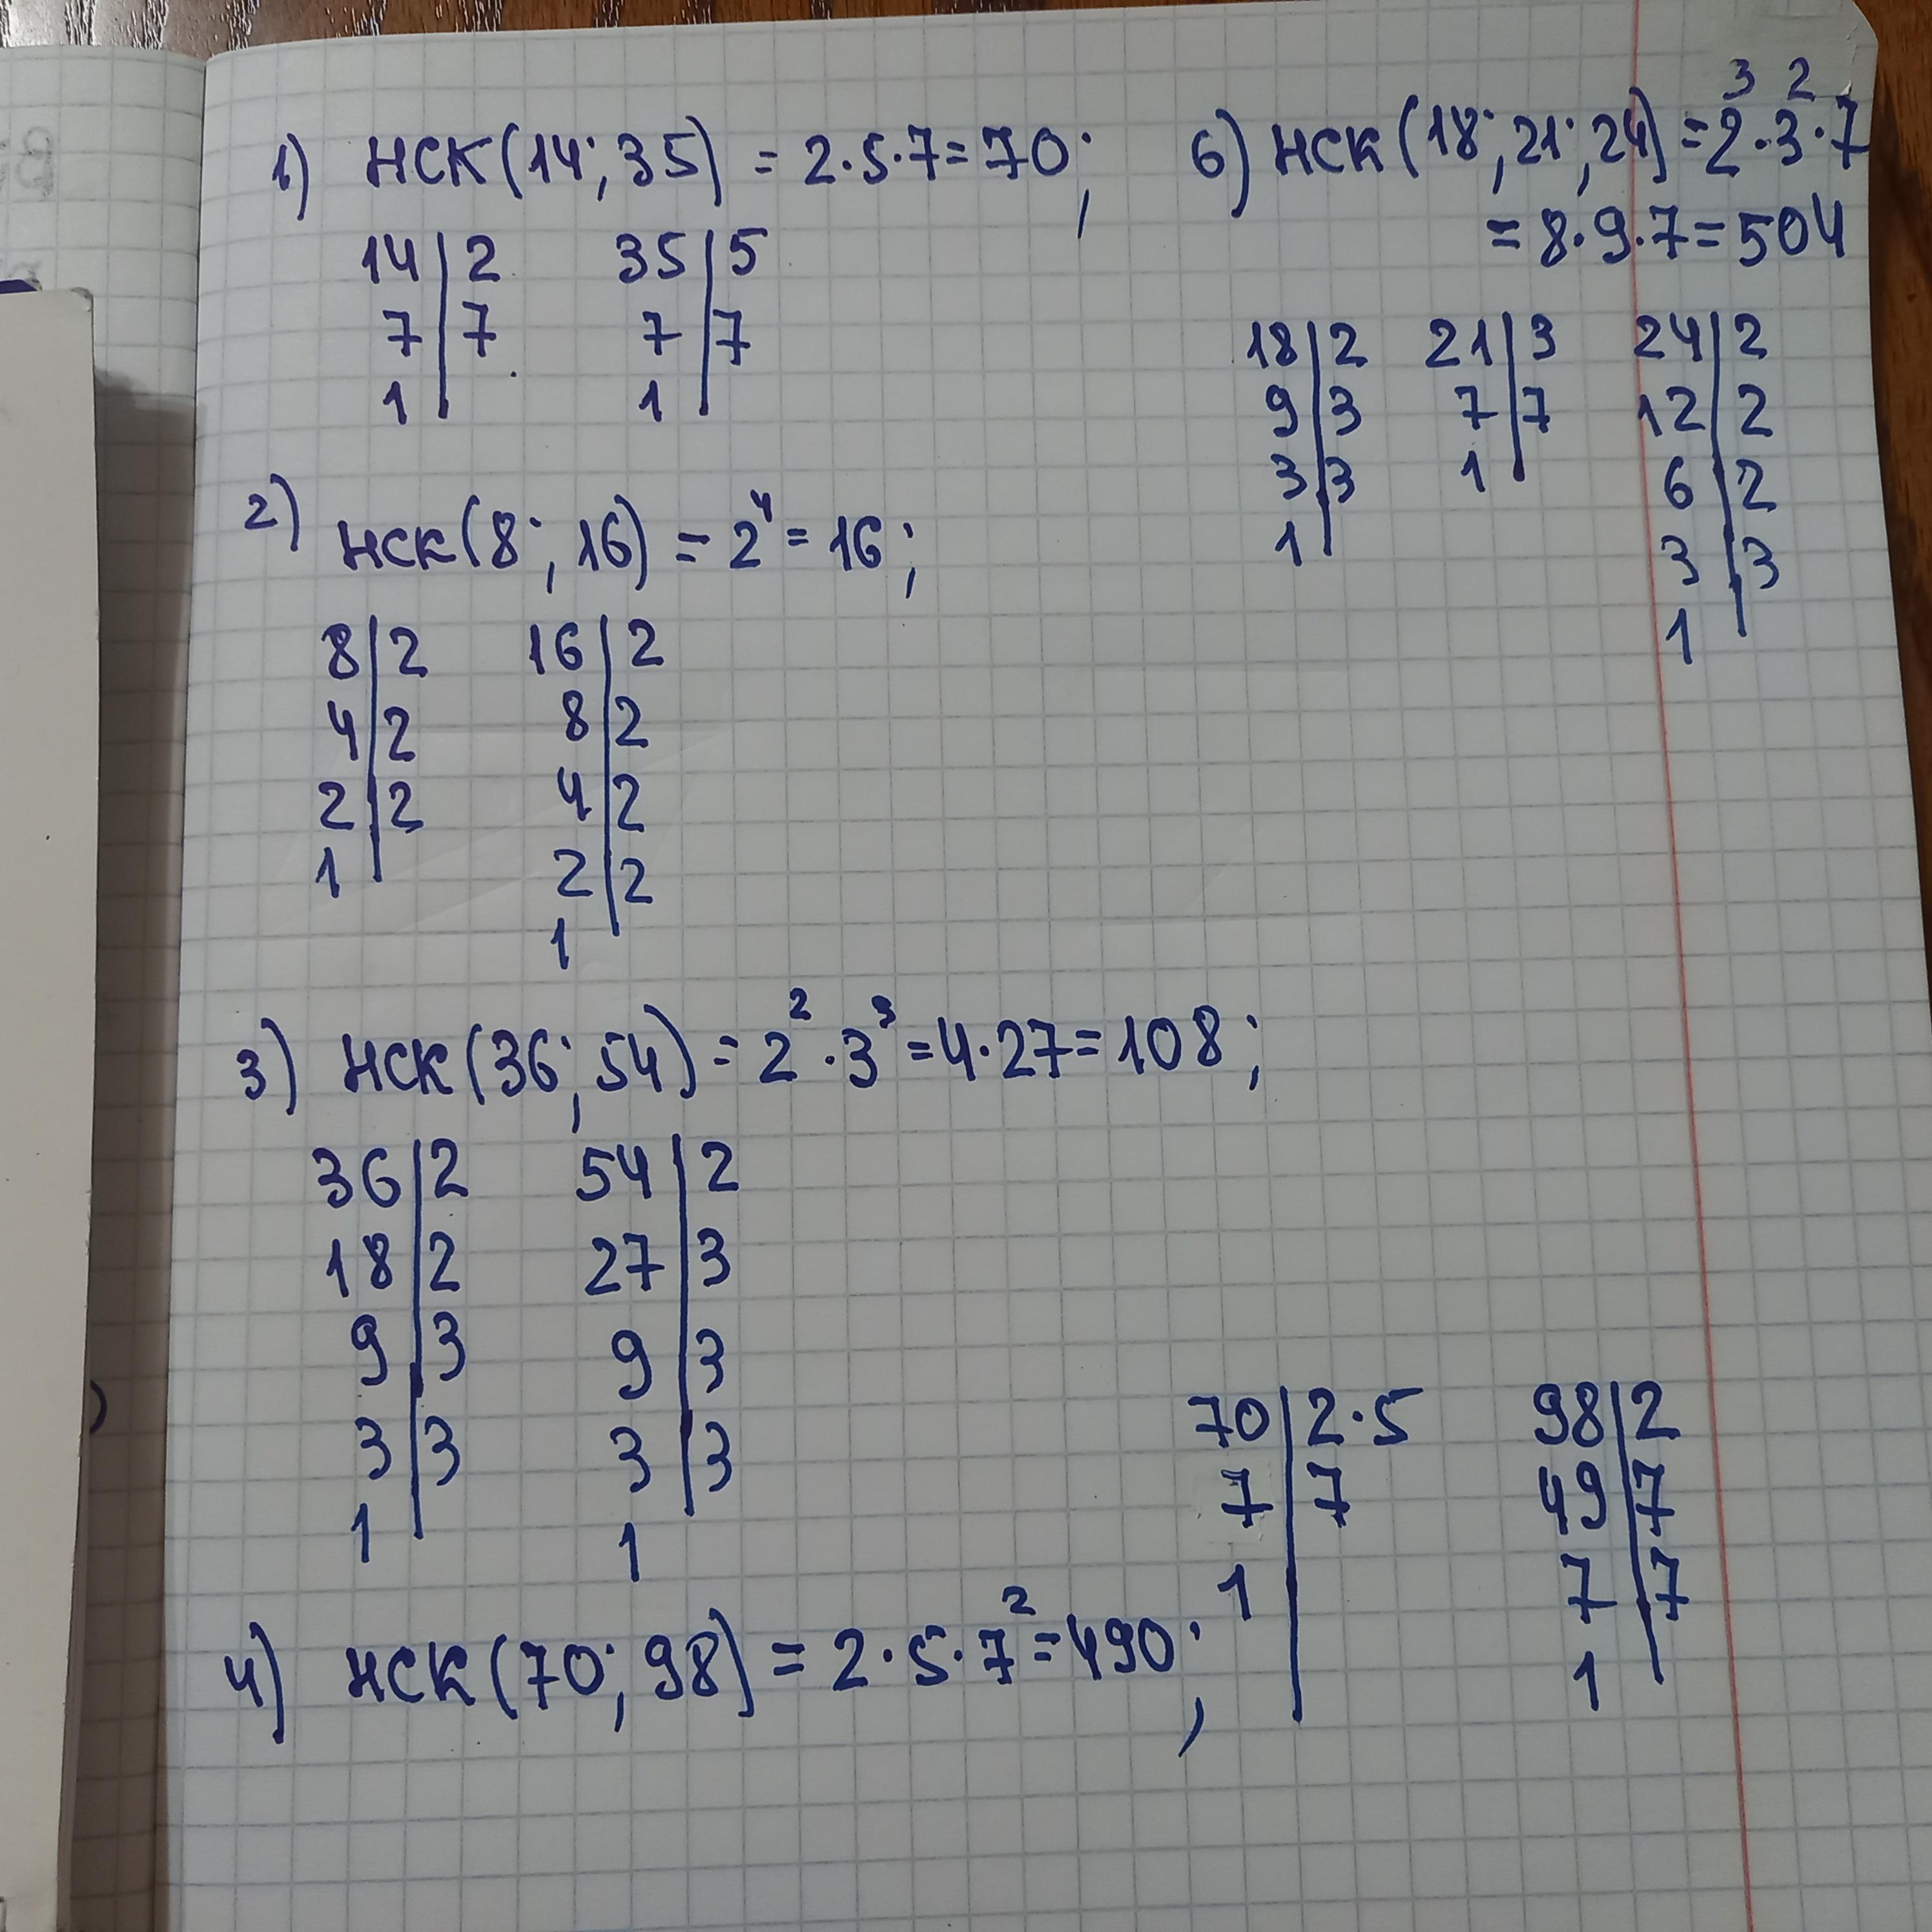 1) НСК(14; 35) = 2·5·7=70;
14|2 35|5
7|7 7|7
1| 1|
2) НСК(8; 16) = 2⁴ = 16;
8|2 16|2
4|2 8|2
2|2 4|2
1| 2|2
1
3) НСК(36; 54) = 2² · 3³ = 4·27=108;
36|2 54|2
18|2 27|3
9|3 9|3
3|3 3|3
1| 1
4) НСК(70; 98) = 2·5·7²=490;
70|2·5 98|2
7|7 49|7
1| 7|7
1|
6) НСК(18; 21; 24) = 2³·3²·7
= 8·9·7=504
18|2 21|3 24|2
9|3 7|7 12|2
3|3 1| 6|2
1| 3|3
1|